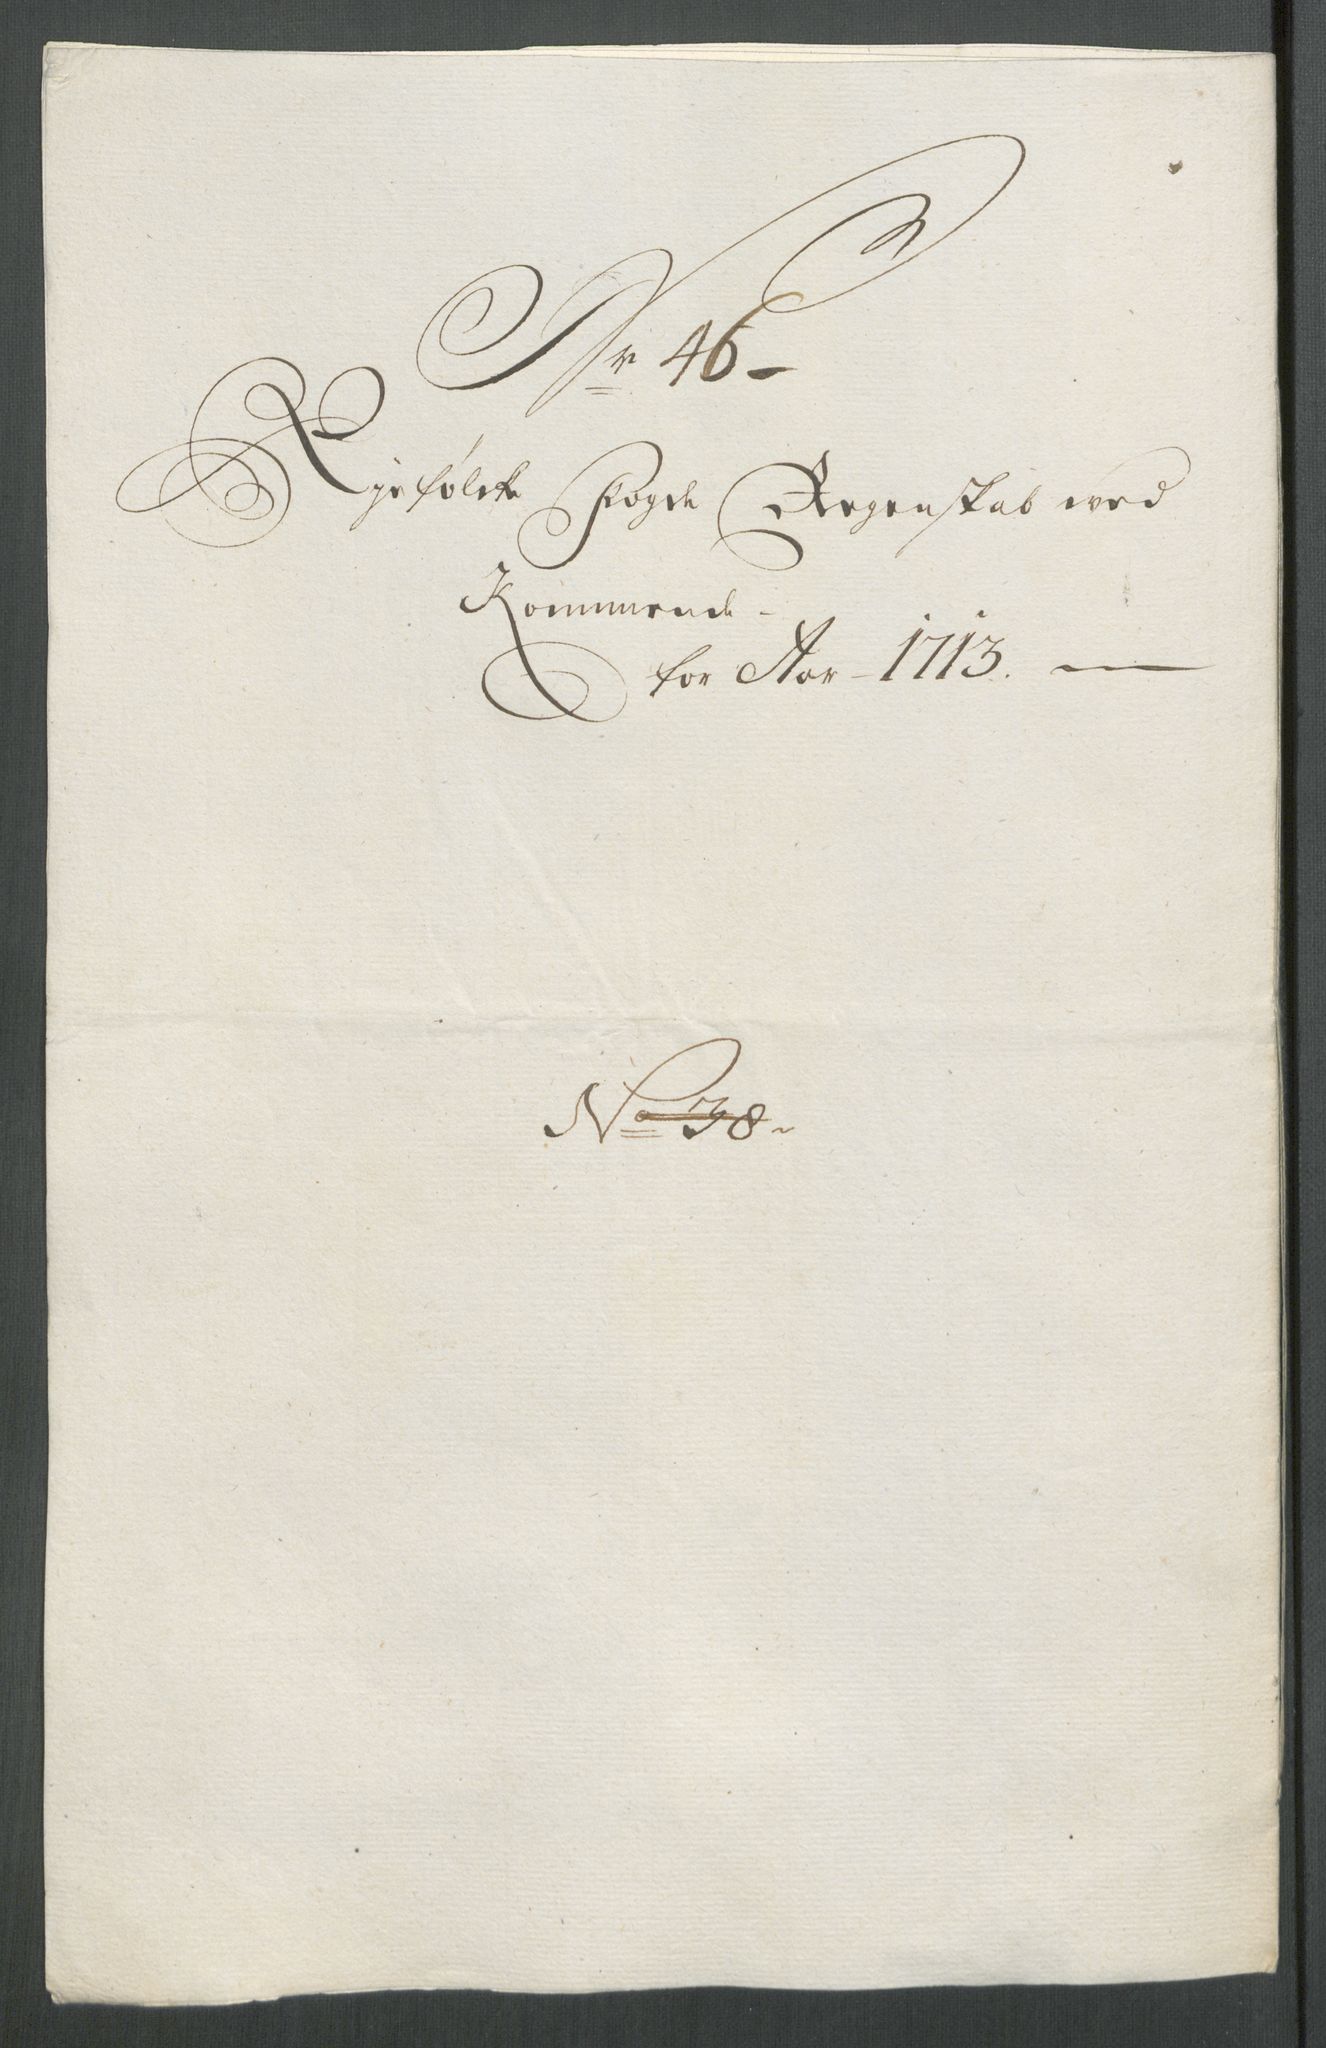 Nr 46
Ryefølcke Fogde Regenskab ved
Kommende
for Aar 1713.
No 38